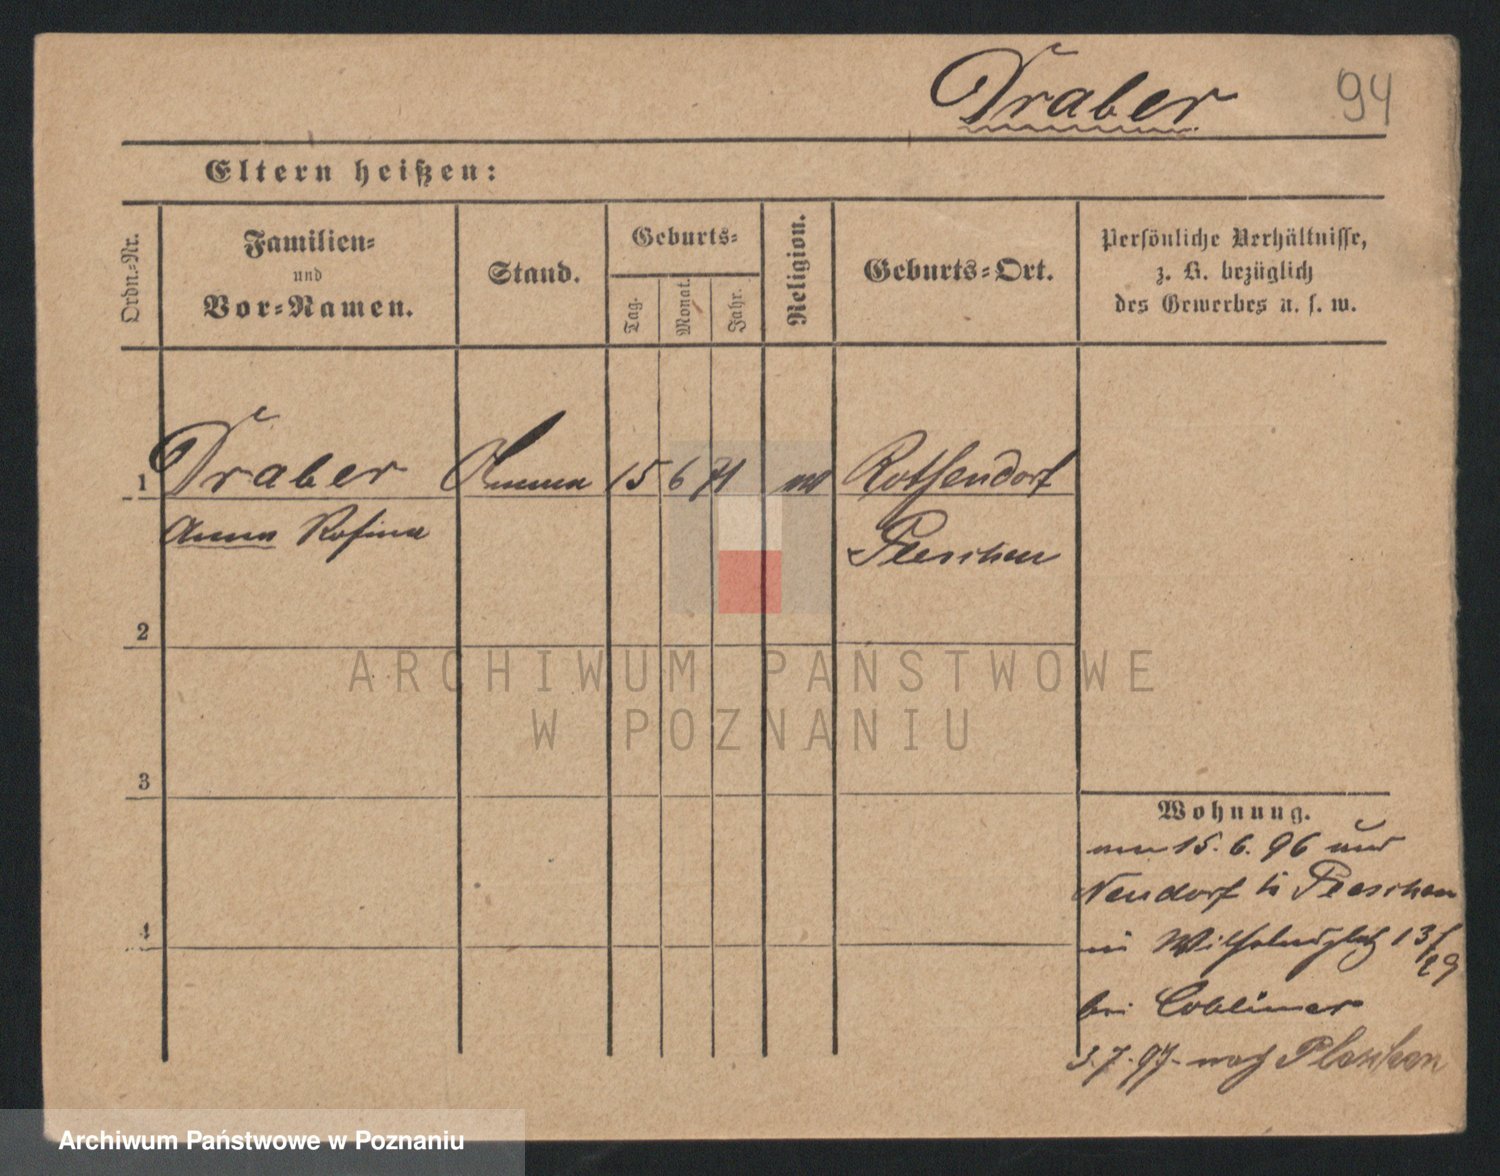 Draber 94
Eltern heißen:
Ordn.-Nr.
Familien-
und
Vor-Namen.
Stand.
Geburts-
Tag.
Monat.
Jahr.
Religion.
Geburts-Ort.
Persönliche Verhältnisse,
z. B. bezüglich
des Gewerbes u. s. w.
1 Draber Amme 15 6 71 Rothendorf
Anna Rosina Pleschen
2
3
4
Wohnung.
15. 6. 96
Neudorf b Pleschen
Wilhelmsplatz 13
bei
3.7.97. nach Pleschen
ARCHIWUM PAŃSTWOWE
W POZNANIU
Archiwum Państwowe w Poznaniu